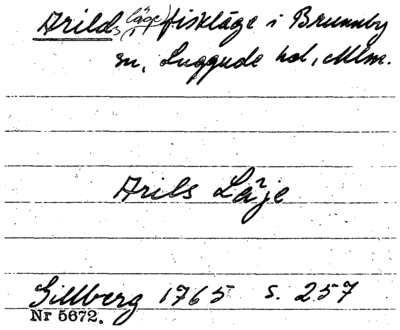 Arilds (läge) fiskläge i Brunnby
sn, Luggude hd, Mlm.
Arils Läje
Gillberg 1765 s. 257
Nr 5672.